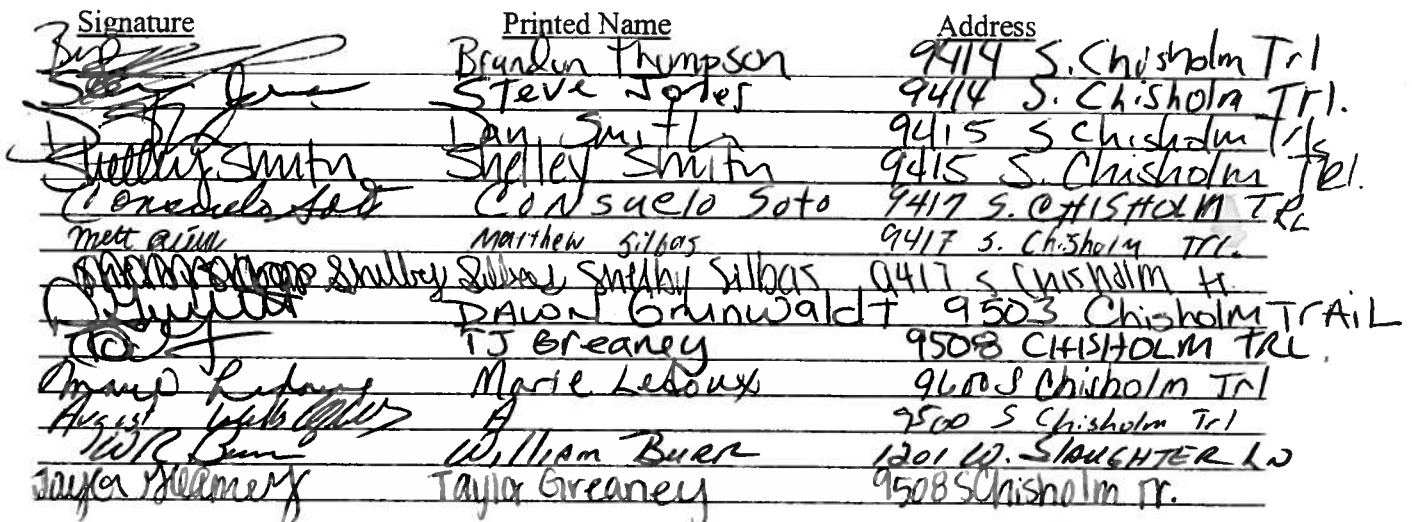 Signature Printed Name Address
Brandon Thompson 9414 S. Chisholm Trl
Steve Jones 9414 S. Chisholm Trl.
Dan Smith 9415 S Chisholm Trls
Shelley Smith Shelley Smith 9415 S. Chisholm Trl.
Consuelo Soto CONSuelo Soto 9417 S. CHISHOLM TRL
Matthew Silbas 9417 S. Chisholm Trl.
Shelby Silbas Shelby Silbas 9417 S Chisholm tr.
DAWN Grunwaldt 9503 Chisholm TrAiL
TJ Greaney 9508 CHISHOLM TRL.
Marie Ledoux Marie Ledoux 9600 S Chisholm Trl
August A 9500 S Chisholm Trl
WR Burr William BURR 1201 W. SlAUGHTER LN
Taylor Greaney Taylor Greaney 9508 S Chisholm Tr.